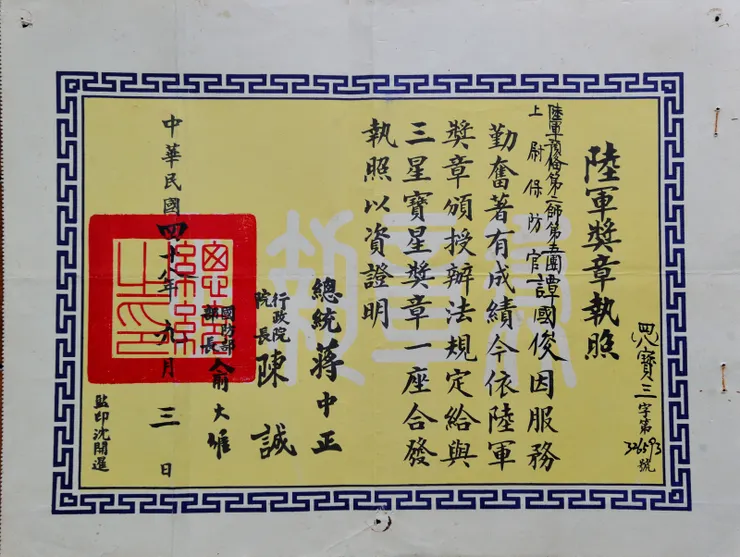 陸軍獎章執照
(四八)寶三字第326593號
陸軍預備第二師第五團
上尉保防官譚國俊因服務
勤奮著有成績今依陸軍
獎章頒授辦法規定給與
三星寶星獎章一座合發
執照以資證明
總統蔣中正
行政院院長陳誠
國防部部長俞大維
中華民國四十八年九月三日
監印沈開運
總統之印